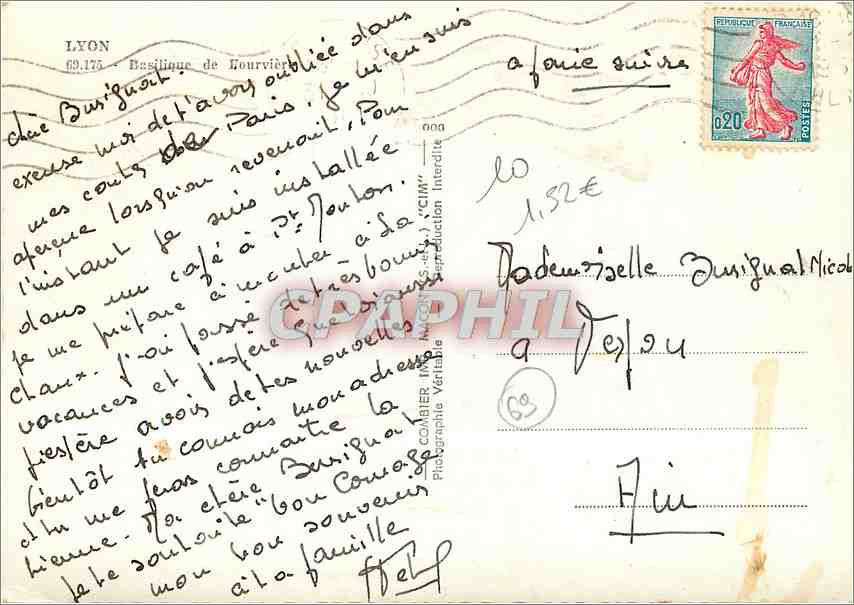 LYON
69.175 - Basilique de Fourvière
chère Busignat.
excuse moi de t'avoir oubliée dans
mes contes de Paris. Je m'en suis
aperçue lorsqu'on revenait. Pour
l'instant je suis installée
dans un café à Pt Mouton.
je me prépare à monter à La
Chaux. J'ai passé de très bonnes
vacances et j'espère que toi aussi
j'espère avoir de tes nouvelles
bientôt tu connais mon adresse
et tu me feras connaître la
tienne. Ma chère Busignat
je te souhaite "bon Courage"
mon bon souvenir
à ta famille
000
COMBIER IMP. MACON (S.-et-L.) "CIM"
Photographie Véritable - Reproduction Interdite
CPAPHIL
a faire suivre
REPUBLIQUE FRANÇAISE
0,20
POSTES
10
1,52€
Mademoiselle Busignat Nicole
a
69
Ain